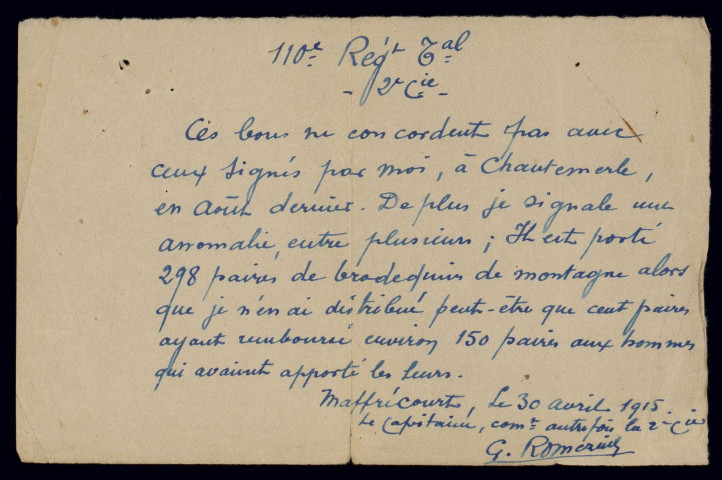 110e Régt Tal
- 2e Cie -
Ces bons ne concordent pas avec
ceux signés par moi, à Chantemerle,
en Août dernier. De plus je signale une
anomalie, entre plusieurs ; Il est porté
298 paires de brodequins de montagne alors
que je n'en ai distribué peut-être que cent paires
ayant remboursé environ 150 paires aux hommes
qui avaient apporté les leurs.
Maffrécourt, le 30 avril 1915.
Le Capitaine, comt autrefois la 2e Cie
G.